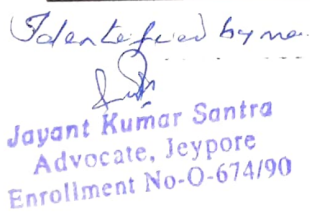 Identified by me.
Jayant Kumar Santra
Advocate, Jeypore
Enrollment No-O-674/90